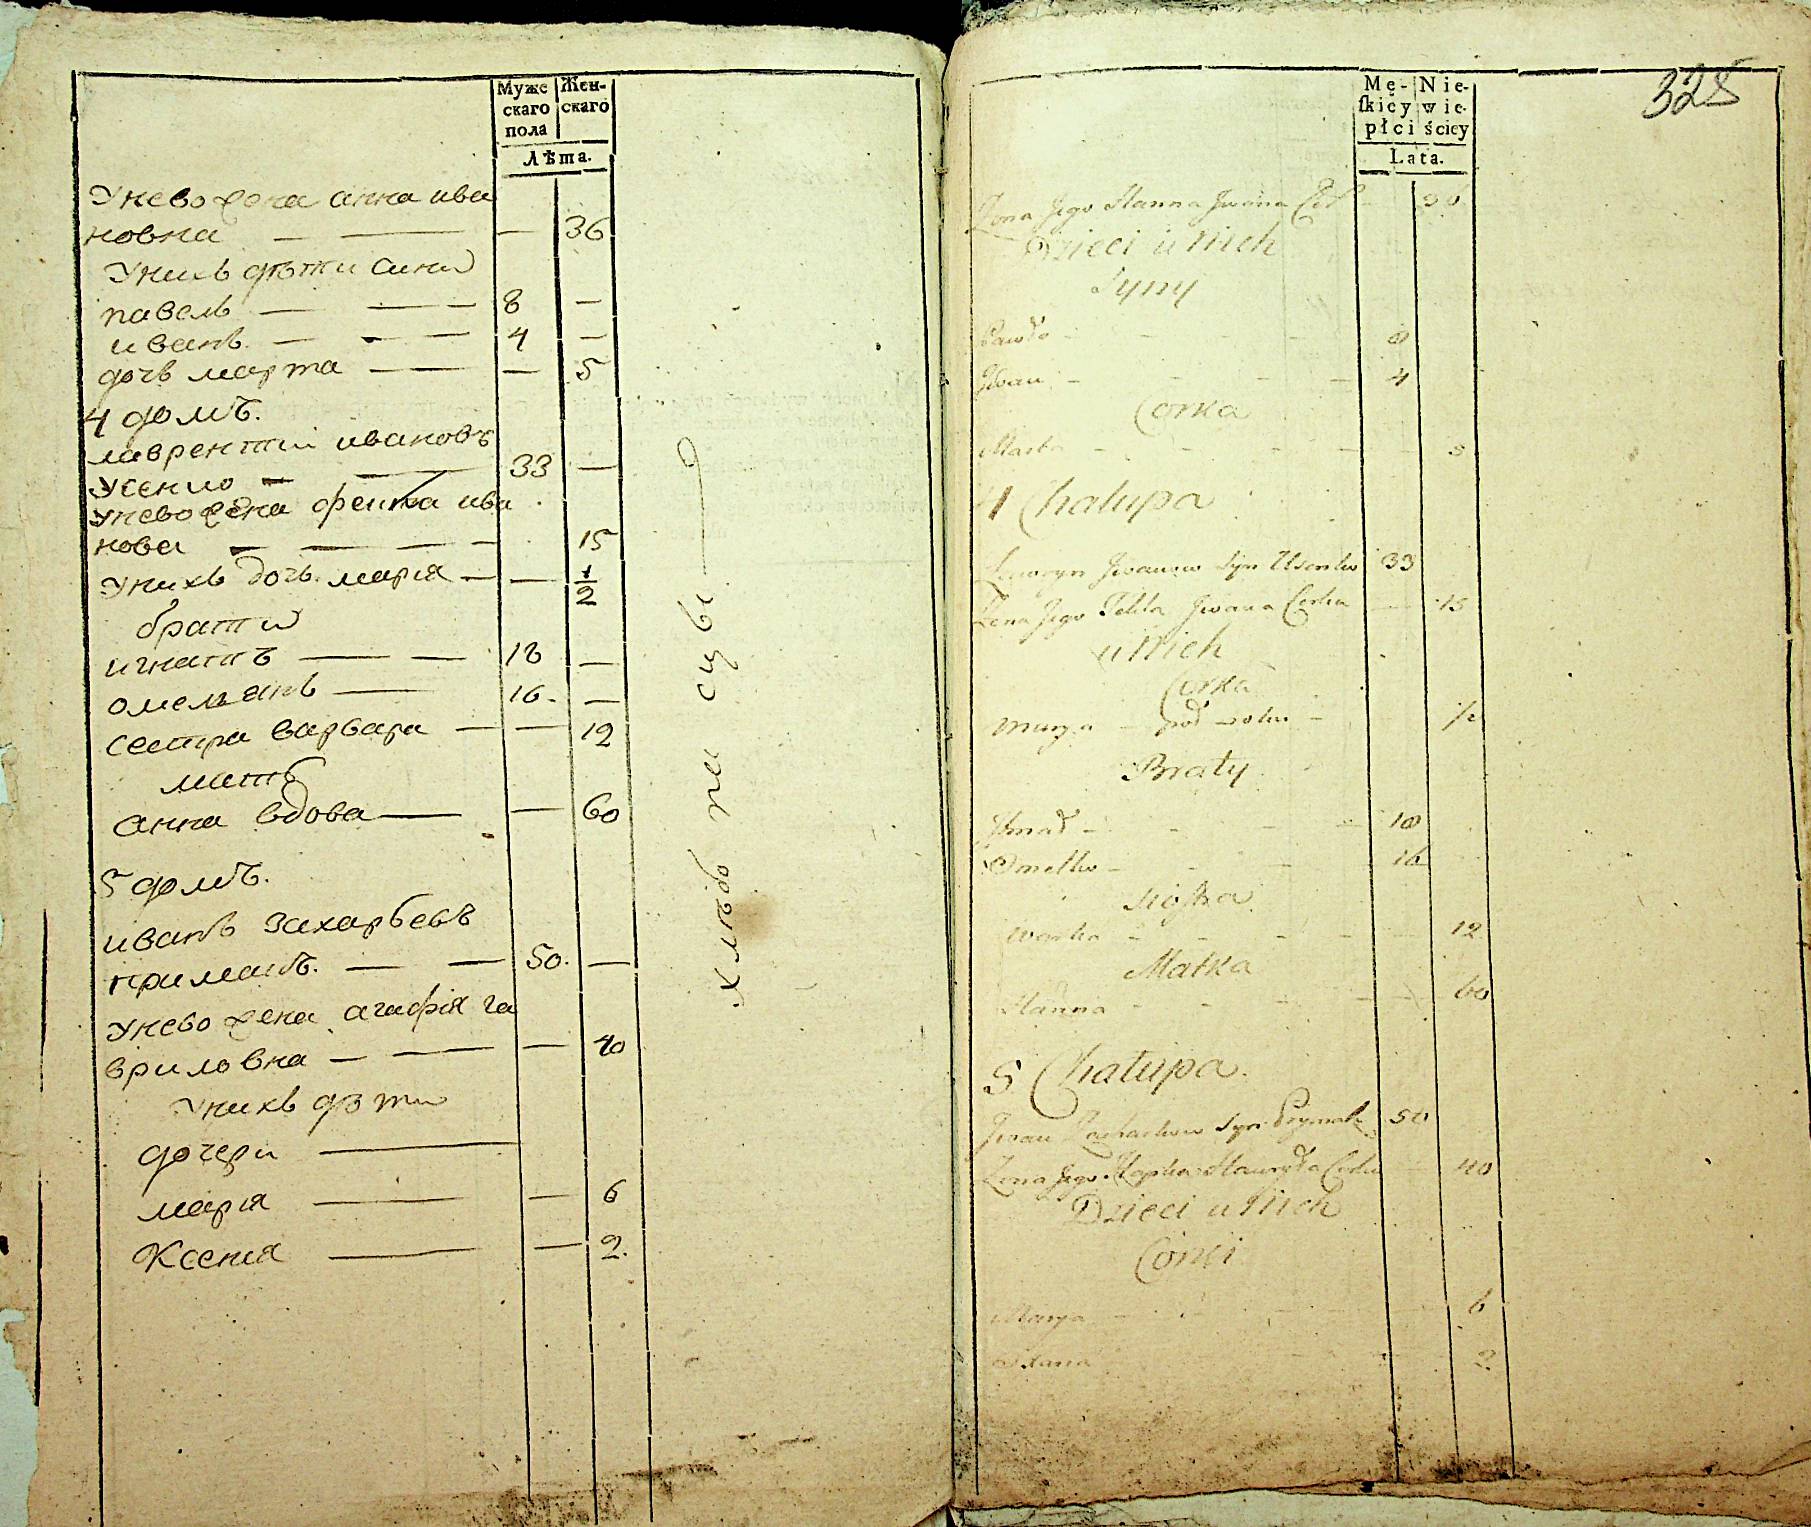 Муже Жен-
скаго скаго
пола
Лѣта.
У нево жена анна ива
новна — — — 36
У нихъ дѣти сини
павелъ — — 8 —
иванъ — — — 4 —
дочь марта — — 5
4 домъ.
лаврентий ивановъ
Усенко — — 33 —
У нево жена феика ива
нова — — — — 15
У нихъ дочь марія — — 1/2
брати
игнатъ — — 18 —
омелянъ — 16. —
сестра варвара — — 12
мать
анна вдова — — 60
5 домъ.
иванъ захарьевъ
примакъ. — — 50. —
У нево жена агафія га
вриловна — — — 40
У нихъ дѣти
дочери —
марія — — 6
Ксенія — — 2.
хлѣбо па сцы
328
Mę- Nie-
ſkiéy wie-
płci ściey
Lata.
Zona Jego Hanna Jwana Cor — 36
Dzieci u Nich
Syny
Pawło - - - - 8
Jwan - - - - 4
Corka
Marta - - - - - 5
4 Chałupa
Ławryn Jwanow Syn Usenko 33
Zona Jego Fekla Jwana Corka — 15
u Nich
Corka
Marya — poł roku - 1/2
Braty
Hnad - - - - 18
Omelko - - - - 16
Siostra
Warka - - - - - 12
Matka
Hanna - - - - - 60
5 Chałupa.
Jwan Zacharkow Syn Prymak 50
Zona Jego Hapka Hawryła Corka — 40
Dzieci u Nich
Corki
Marya - - - - - 6
2